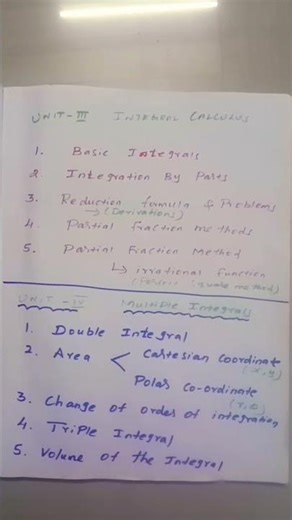 UNIT-III INTEGRAL CALCULUS
1. Basic Integrals
2. Integration By Parts
3. Reduction formula & Problems
→ (Derivations)
4. Partial Fraction methods
5. Partial Fraction Method
↳ irrational function
UNIT-IV Multiple Integrals
1. Double Integral
2. Area < Cartesian Coordinate
(x,y)
Polar Co-ordinate
(r,θ)
3. Change of order of integration
4. Triple Integral
5. Volume of the Integral